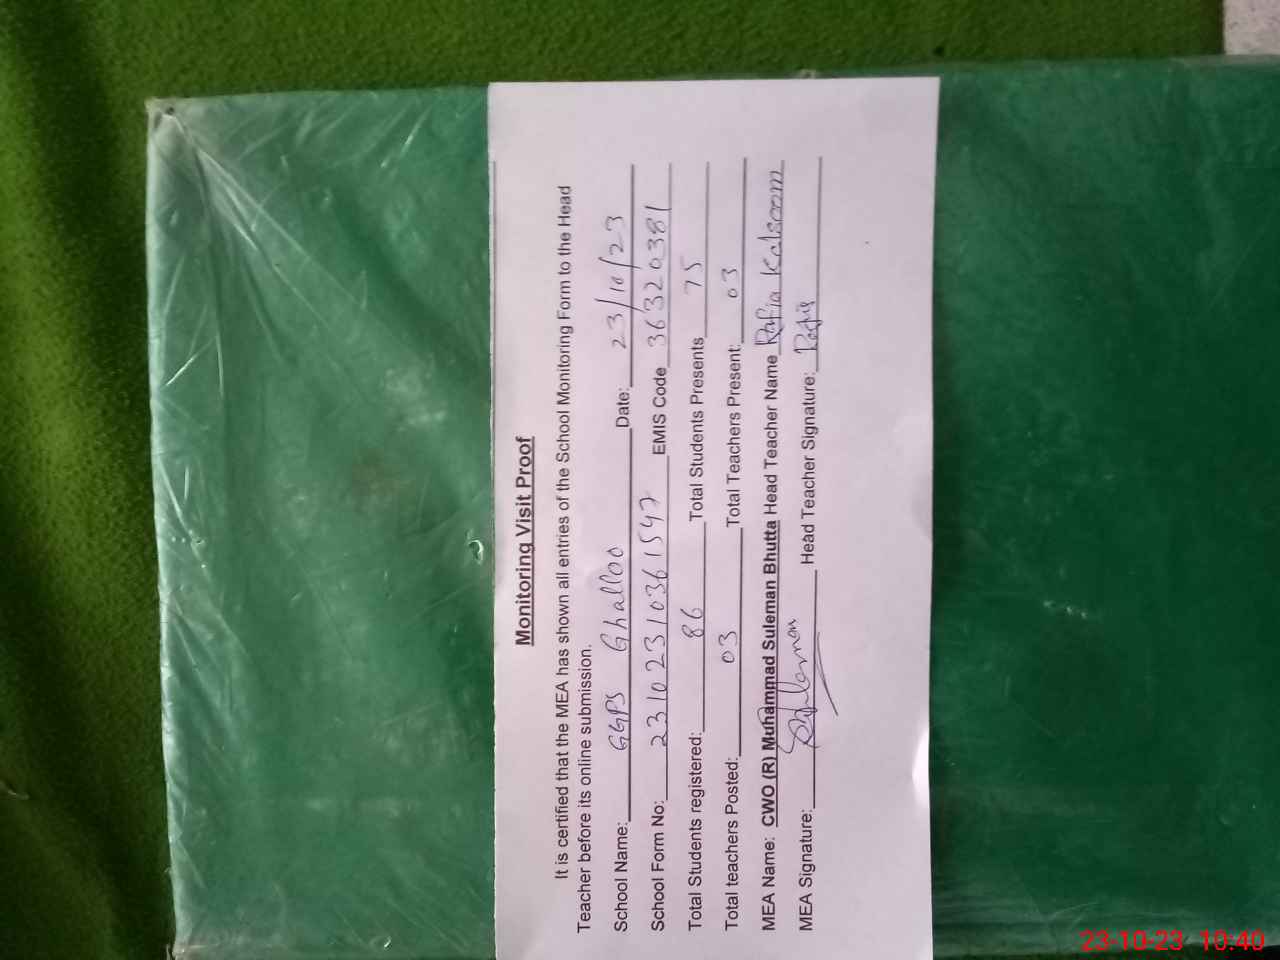 Monitoring Visit Proof
It is certified that the MEA has shown all entries of the School Monitoring Form to the Head
Teacher before its online submission.
School Name: GGPS Ghalloo Date: 23/10/23
School Form No: 23102310361547 EMIS Code 36320381
Total Students registered: 86 Total Students Presents 75
Total teachers Posted: 03 Total Teachers Present: 03
MEA Name: CWO (R) Muhammad Suleman Bhutta Head Teacher Name Rafia Kalsoom
MEA Signature: Head Teacher Signature: Rafia
23-10-23 10:40